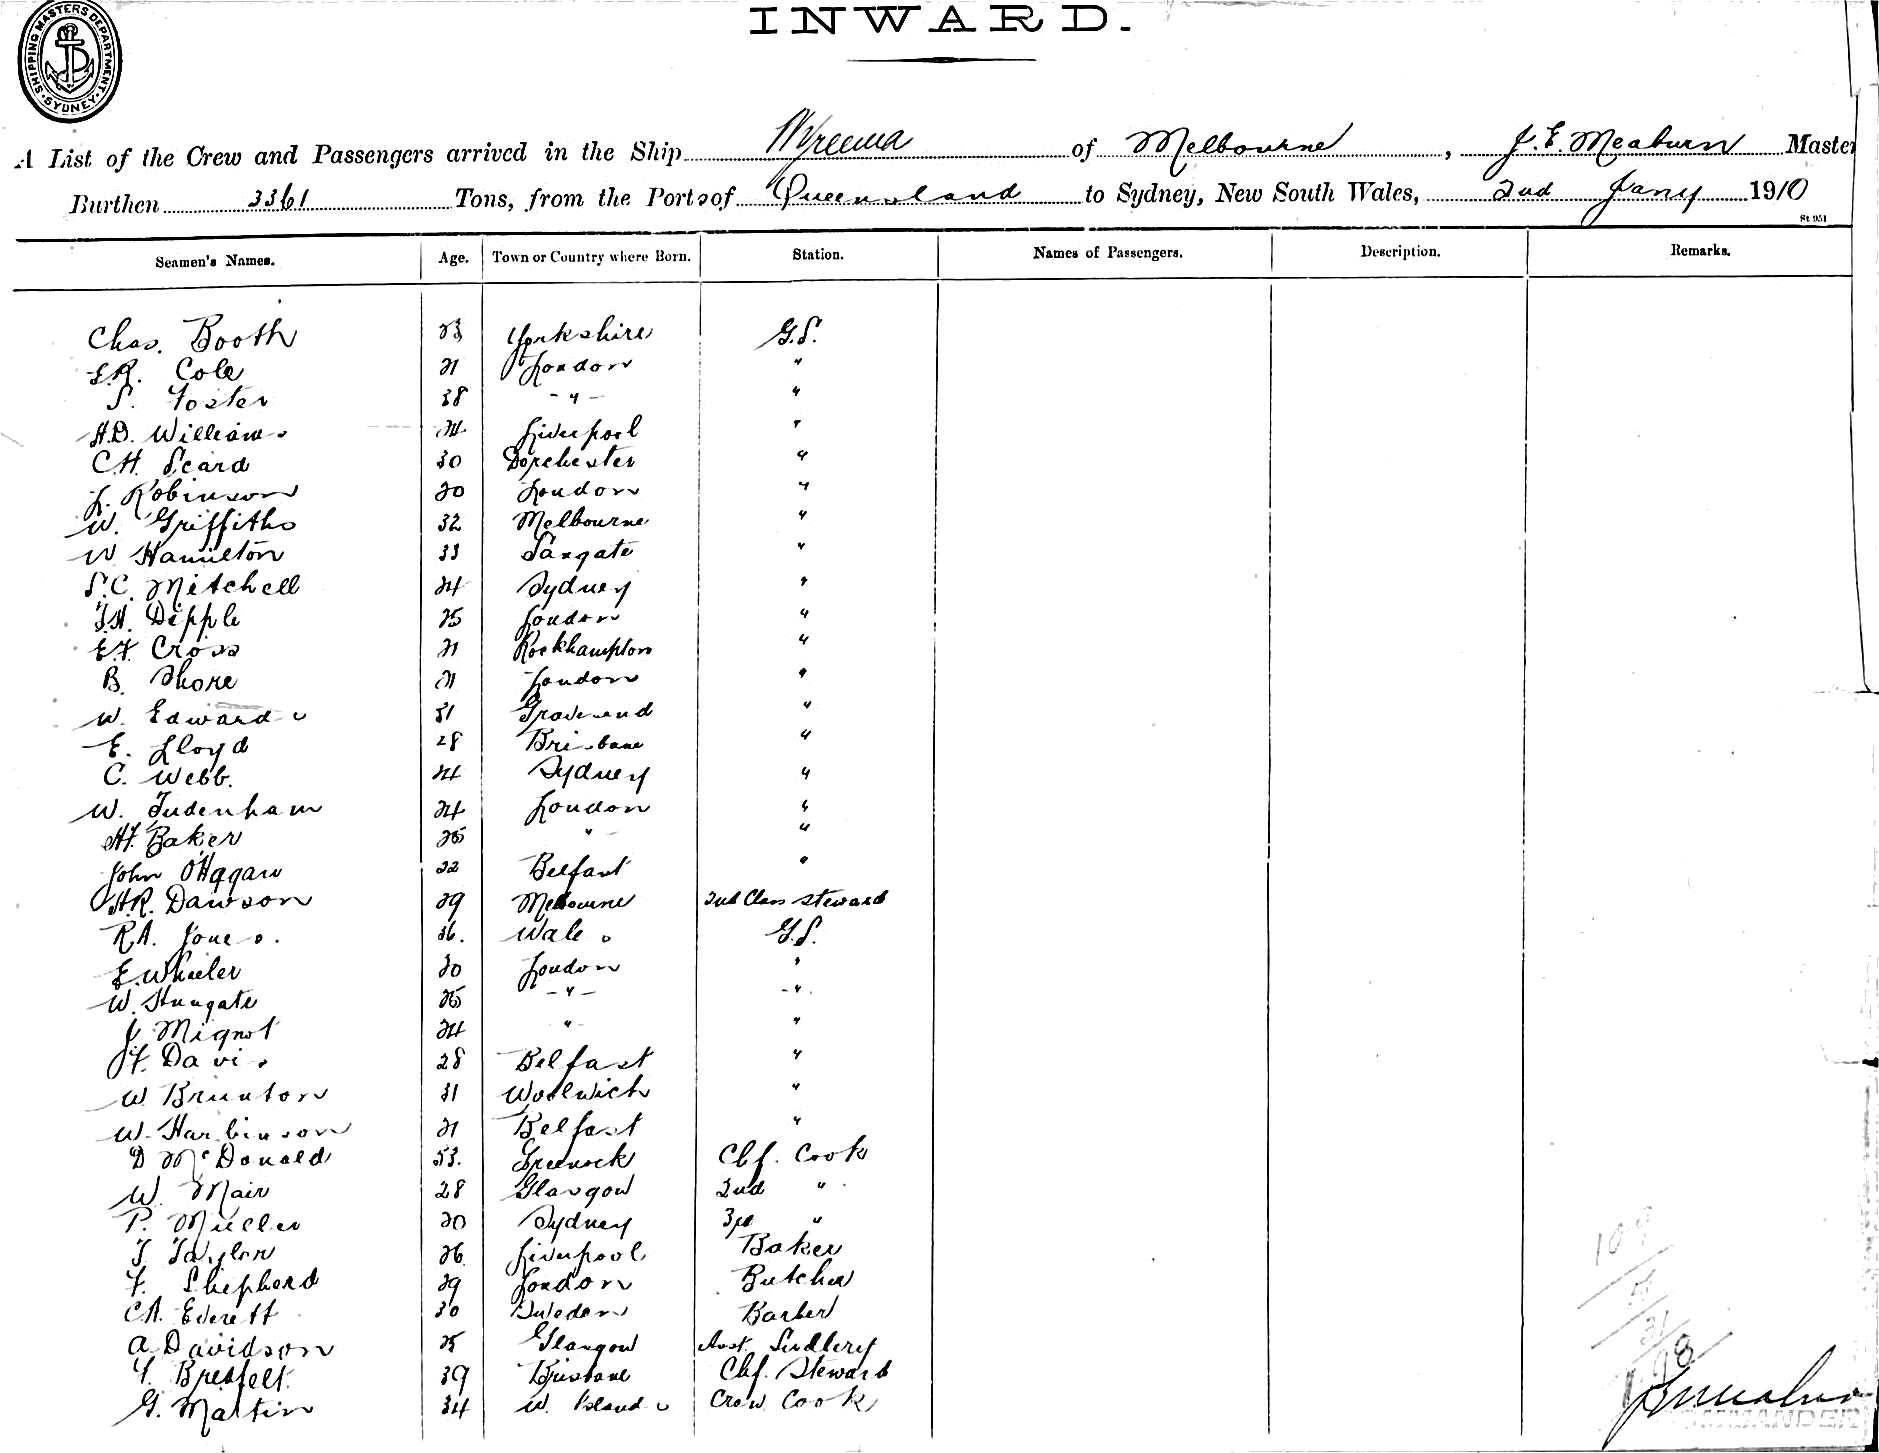 SHIPPING MASTERS DEPARTMENT SYDNEY
INWARD.
A List of the Crew and Passengers arrived in the Ship Wyreema of Melbourne, J. E. Meaburn Master
Burthen 3361 Tons, from the Ports of Queensland to Sydney, New South Wales, 2nd Jany 1910
St 951
Seamen's Names. Age. Town or Country where Born. Station. Names of Passengers. Description. Remarks.
Chas. Booth 23 Yorkshire G.S.
Cole 21 London "
S. Foster 38 - " - "
H.D. Williams 24 Liverpool "
C.H. Scard 30 Dorchester "
L. Robinson 20 London "
W. Griffiths 32 Melbourne "
W Hamilton 33 "
S.C. Mitchell 24 Sydney "
Dipple 25 London "
E.F. Cross 21 Rockhampton "
B. Shore 21 London "
W. Edwards 31 Gravesend "
E. Lloyd 28 Brisbane "
C. Webb. 24 Sydney "
W. Tudenham 24 London "
H.F. Baker 26 " "
John O'Hagan 22 Belfast "
H.R. Dawson 29 Melbourne 2nd Class Steward
R.A. Jones. 36. Wales G.S.
E. Wheeler 30 London "
W. Hungate 26 - " - - " -
J Mignot 24 " "
F. Davis 28 Belfast "
W. Brunton 31 Woolwich "
W. Harbinson 21 Belfast "
D McDonald 53. Greenock Chf. Cook
W. Mair 28 Glasgow 2nd "
P. Muller 20 Sydney 3rd "
T Taylor 26 Liverpool Baker
F. Shepherd 29 London Butcher
C.A. Everett 30 Sweden Barber
A. Davidson 25 Glasgow Asst. Scullery
Brestelt 39 Brisbane Chf. Steward
G. Martin 34 W. Islands Crew Cook
109
COMMANDER